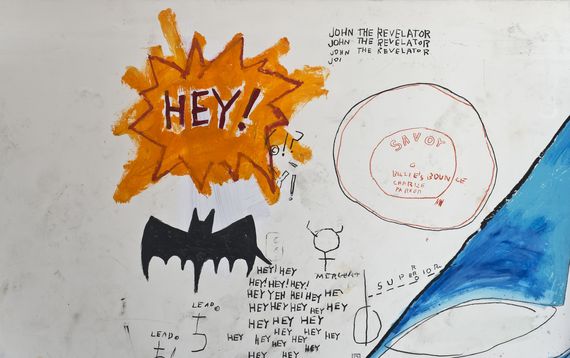 JOHN THE REVELATOR
JOHN THE REVELATOR
JOHN THE REVELATOR
JOI
HEY!
!?
?!
SAVOY
BILLIE'S BOUNCE
CHARLIE
PARKER
HEY! HEY
HEY! HEY! HEY!
HEY YEH HEI HEY HE
HEY HEY HEY HEY HEY
HEY HEY HEY
HEY HEY HEY HEY
HEY HEY HEY
HEY HEY
MERCURY
SUPERIOR
LEAD
LEAD